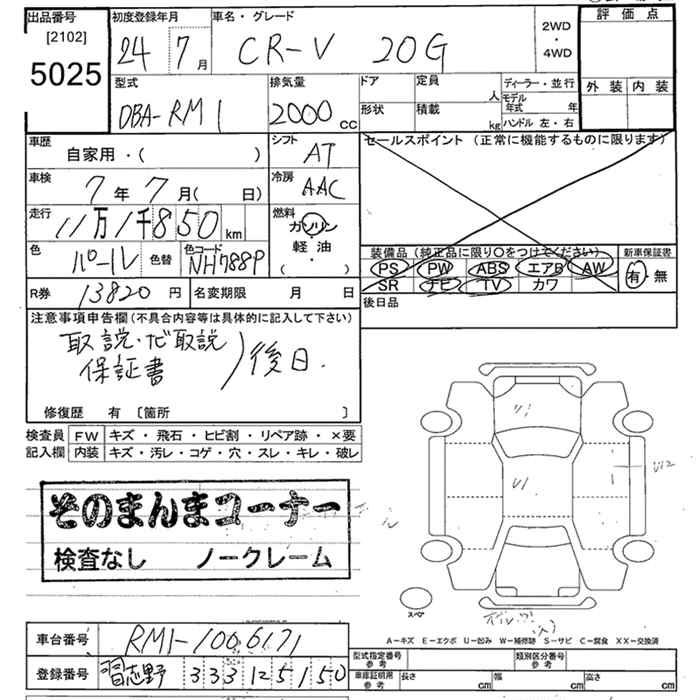 出品番号 初度登録年月 車名・グレード 評価点
[2102]
5025
24年7月 CR-V 20G 2WD・4WD
外装 内装
型式 排気量 ドア 定員 人 ディーラー・並行
DBA-RM1 2000cc 形状 積載 kg モデル年式 年
ハンドル 左・右
車歴 シフト セールスポイント (正常に機能するものに限ります)
自家用・( ) AT
車検 冷房
7年7月( 日) AAC
走行 燃料
11万1千850km ガソリン・軽油・( )
色 色替 色コード
パール NH788P
装備品 (純正品に限り○をつけてください) 新車保証書
PS PW ABS エアB AW 有・無
SR ナビ TV カワ
R券 13820円 名変期限 月 日 後日品
注意事項申告欄(不具合内容等は具体的に記入して下さい)
取説・ナビ取説
保証書 )後日.
修復歴 有 [箇所 ]
検査員 FW キズ・飛石・ヒビ割・リペア跡・×要
記入欄 内装 キズ・汚レ・コゲ・穴・スレ・キレ・破レ
U1
U1
U12
そのまんまコーナー
検査なし ノークレーム
スペア
A-キズ E-エクボ U-凹み W-補修跡 S-サビ C-腐食 XX-交換済
車台番号 RM1-1006171
登録番号 習志野 333 に 5150
型式指定番号 参考 類別区分番号 参考
車庫証明用 参考 長さ cm 幅 cm 高さ cm